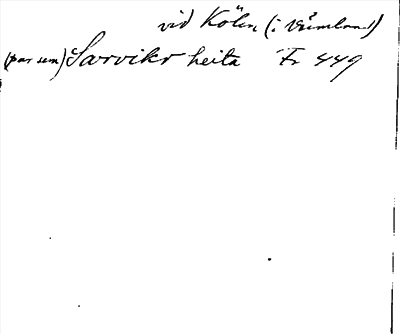 vid Köln (i Värmland)
(þar sem) Sarvikr heita Fr 449